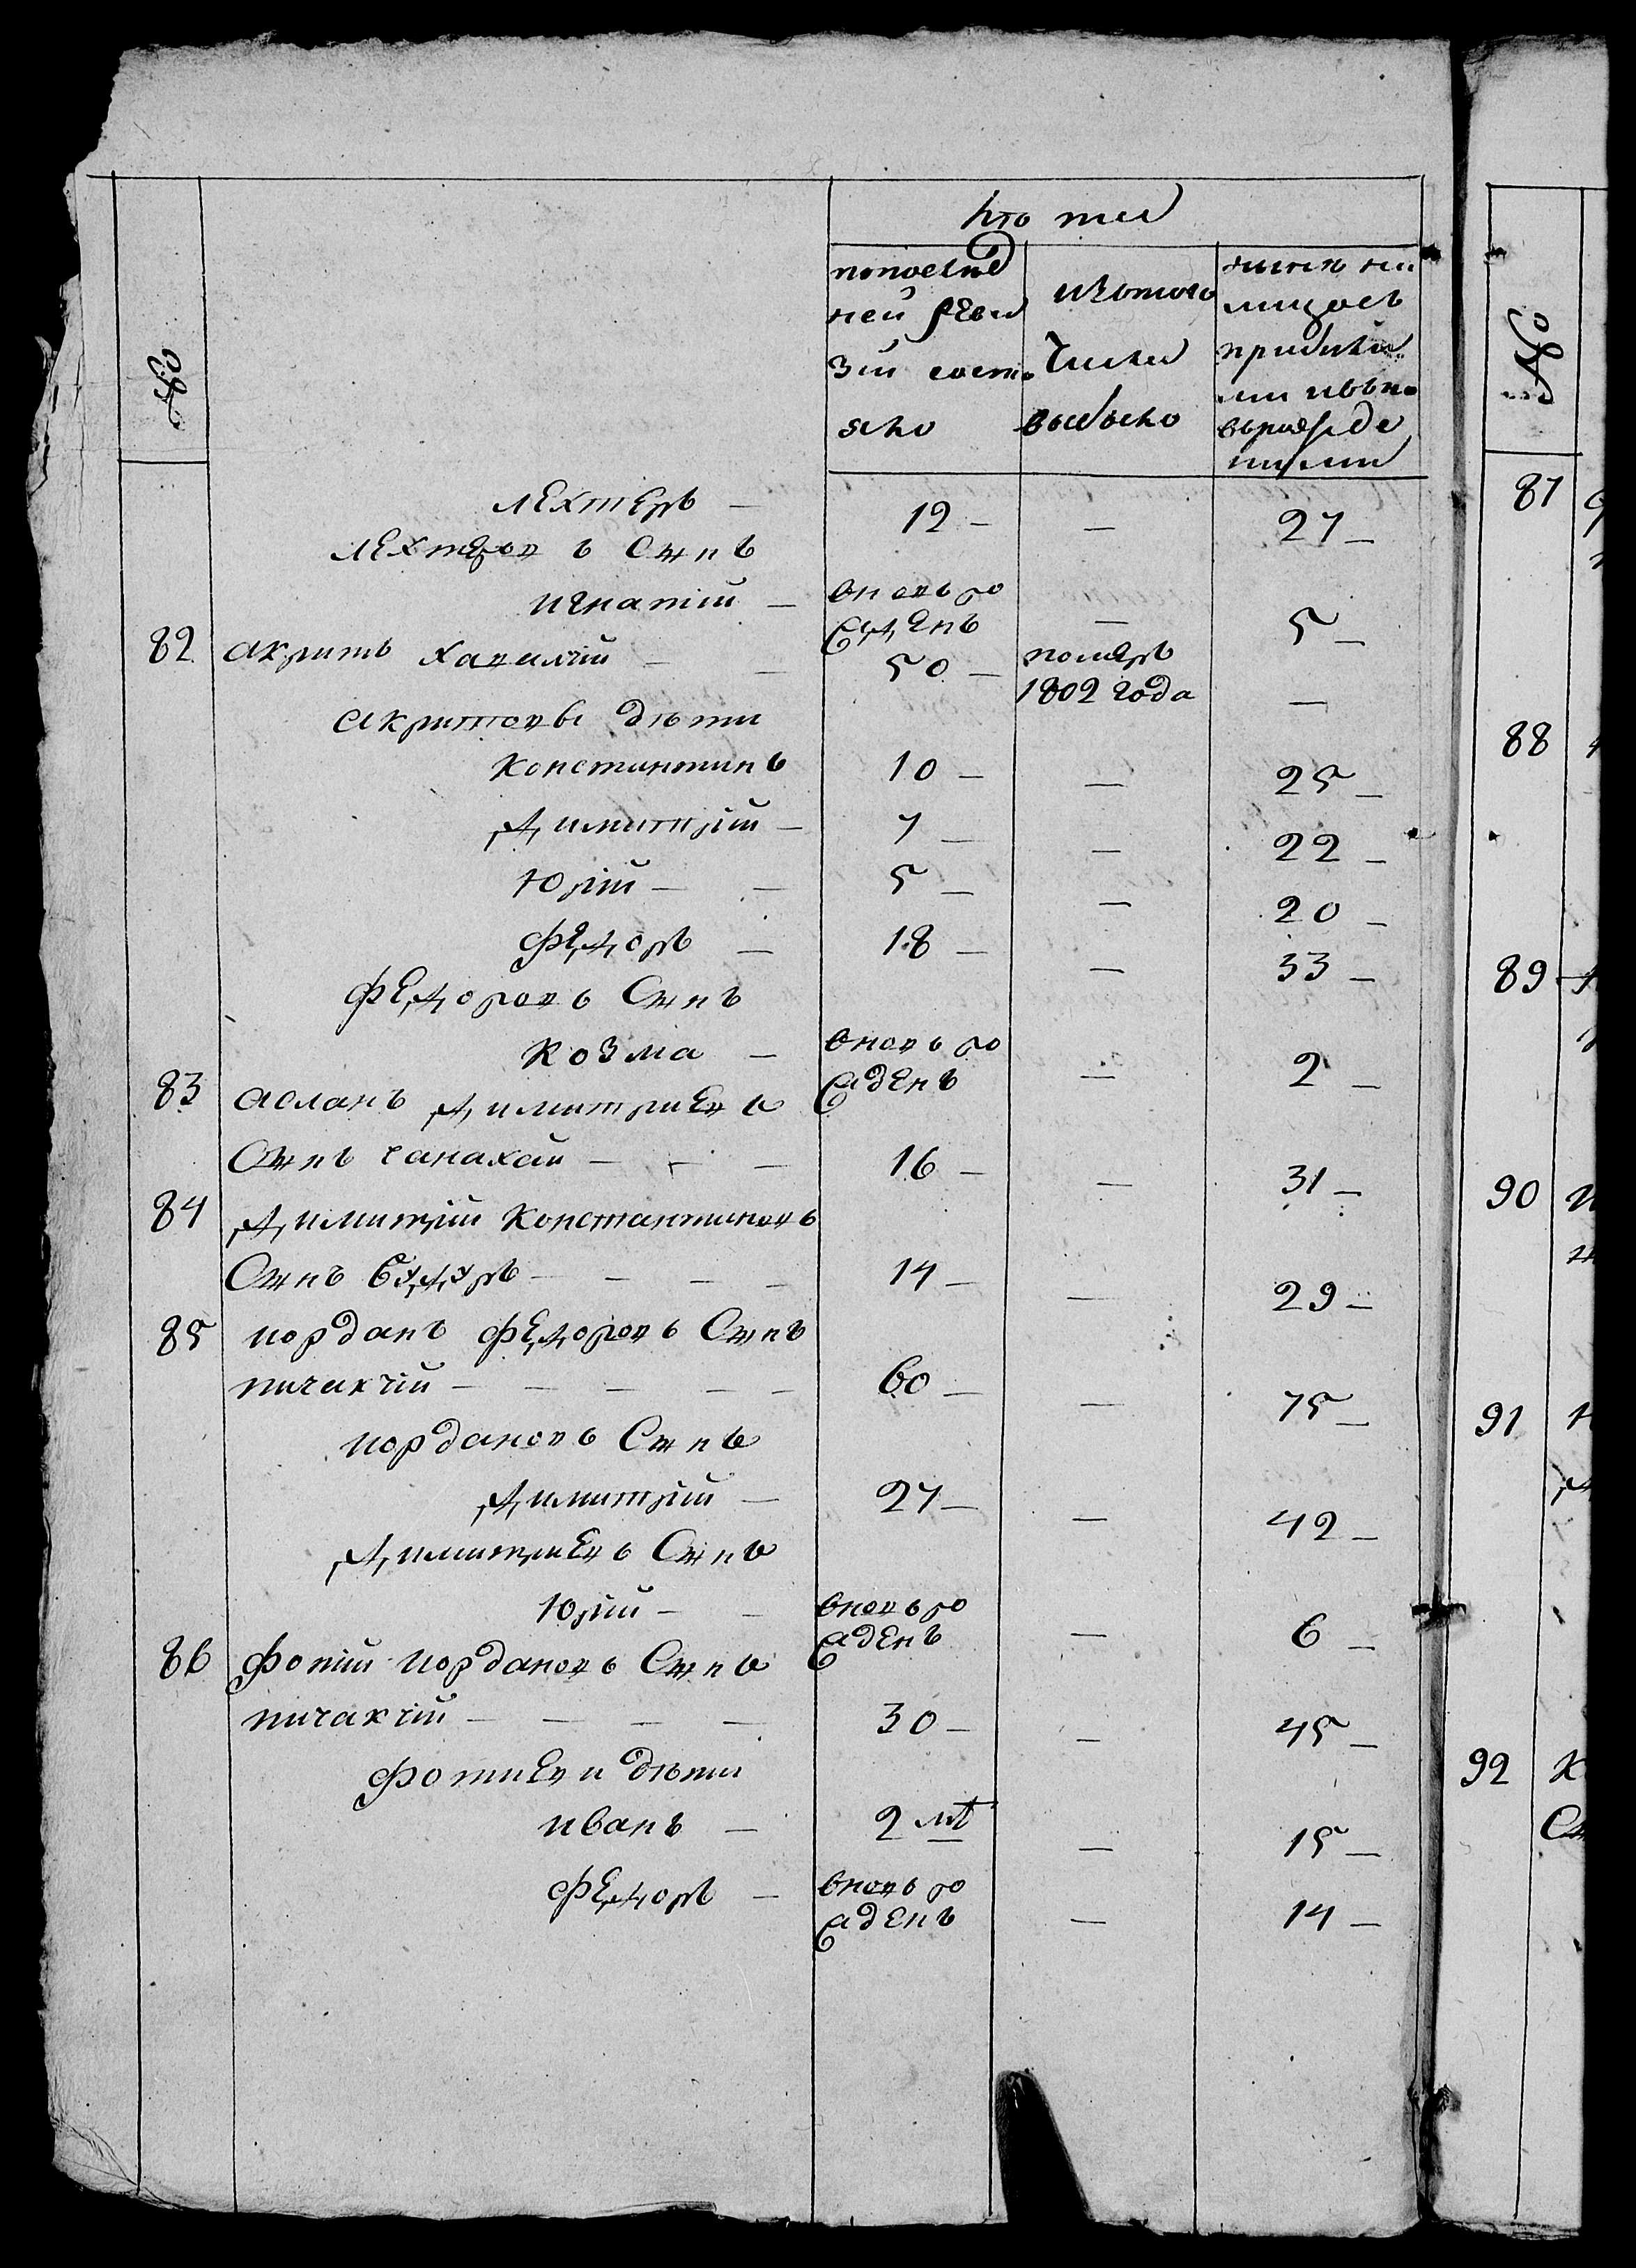 №
по послѣд
ней реви
зіи состо
яло
изътого
Числа
выбыло
лицо съ
прибылы
ми
Лехтеръ — 12 — — 27 —
Лехтеровъ Сынъ
Игнатий — вновь ро
жденъ — 5 —
82 Акритъ — 50 — померъ
1802 года —
Акритовы дѣти
Константинъ 10 — — 25 —
Димитрій — 7 — — 22 —
Юрій — — 5 — — 20 —
Федоръ — 18 — — 33 —
Федоровъ Сынъ
Козма — вновь ро
жденъ — 2 —
83 Асланъ Димитриевъ
Сынъ Чанахай — — — 16 — — 31 —
84 Димитрій Константиновъ
Сынъ Будуръ — — — — 14 — — 29 —
85 Иорданъ Федоровъ Сынъ
Пичакчій — — — — — 60 — — 75 —
Иордановъ Сынъ
Димитрій — 27 — — 42 —
Димитриевъ Сынъ
Юрій — — вновь ро
жденъ — 6 —
86 Фотій Иордановъ Сынъ
Пичакчій — — — — 30 — — 45 —
Фотиеви дѣти
Иванъ — 2 мѣ — 15 —
Федоръ — вновь ро
жденъ — 14 —
№
87
88
89
90
91
92